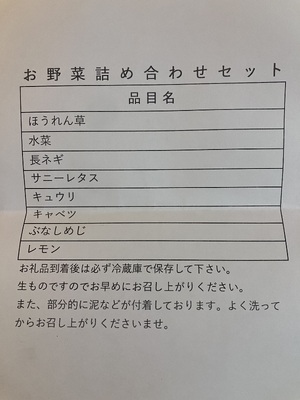 お野菜詰め合わせセット
品目名
ほうれん草
水菜
長ネギ
サニーレタス
キュウリ
キャベツ
ぶなしめじ
レモン
お礼品到着後は必ず冷蔵庫で保存して下さい。
生ものですのでお早めにお召し上がりください。
また、部分的に泥などが付着しております。よく洗って
からお召し上がりくださいませ。